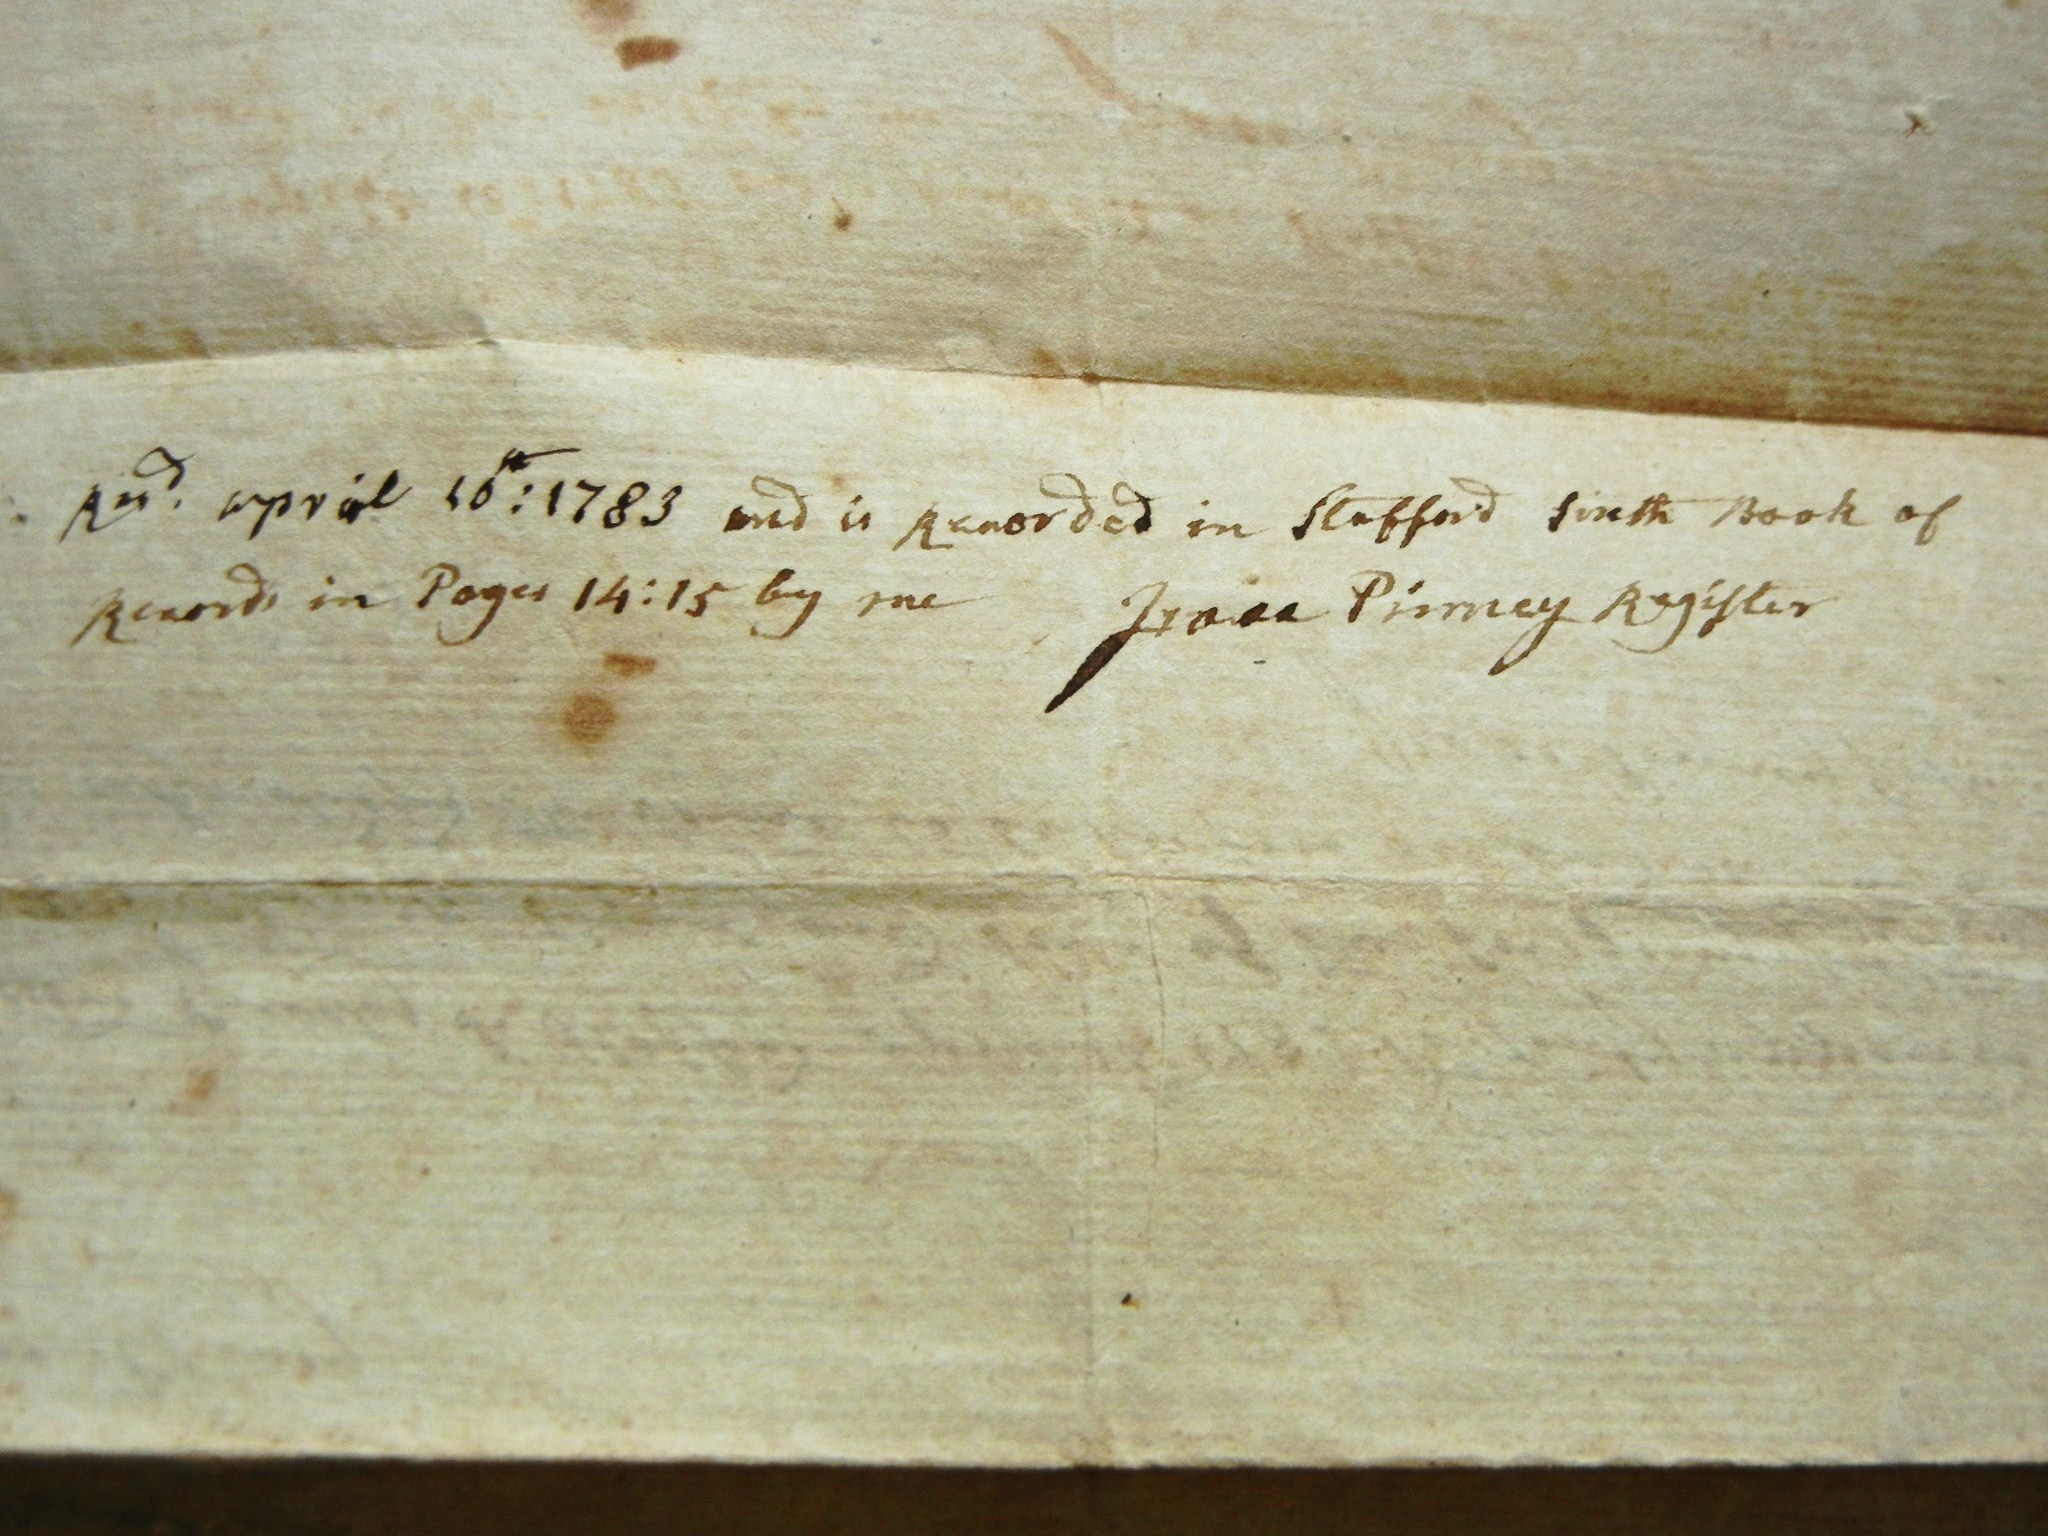 Recd. april 16th: 1783 and is Recorded in Stafford Sixth Book of
Records in Pages 14:15 by me Isaac Pinney Register